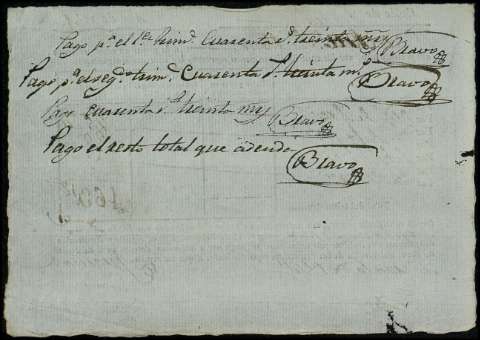 Pago pr. el 1er trimе. Cuarenta rs. treinta mrs Bravo
Pago pr. el segdo. trime. Cuarenta rs. treinta ms. Bravo
Pago Cuarenta rs. treinta mrs Bravo
Pago el resto total que adeuda Bravo